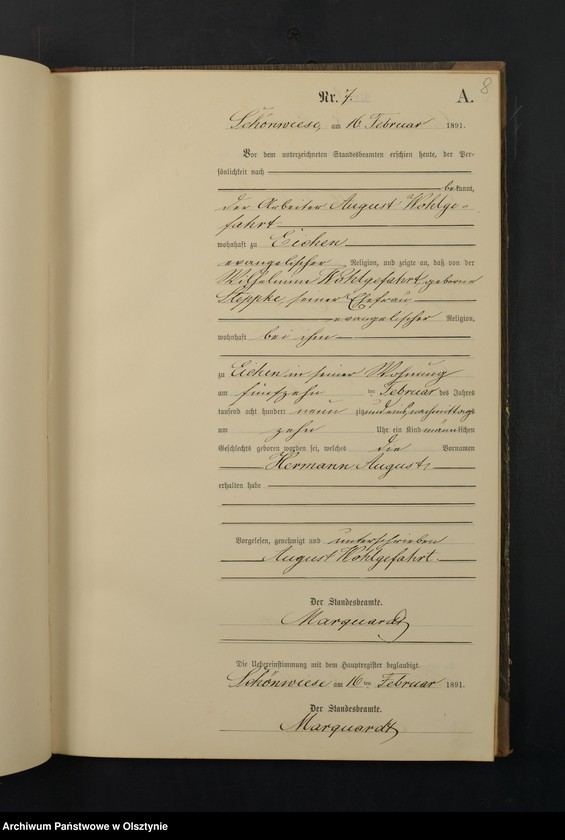 8
Nr. 7. A.
Schönwiese, am 16 Februar 1891.
Vor dem unterzeichneten Standesbeamten erschien heute, der Per-
sönlichkeit nach
bekannt,
der Arbeiter August Wohlge-
fahrt
wohnhaft zu Eichen
evangelischer Religion, und zeigte an, daß von der
Wilhelmine Wohlgefahrt geborene
Steppke, seiner Ehefrau
evangelischer Religion,
wohnhaft bei ihm
zu Eichen in seiner Wohnung
am fünfzehn ten Februar des Jahres
tausend acht hundert neun zig und eins, nachmittags
um zehn Uhr ein Kind männlichen
Geschlechts geboren worden sei, welches die Vornamen
Hermann August,
erhalten habe
Vorgelesen, genehmigt und unterschrieben
August Wohlgefahrt.
Der Standesbeamte.
Marquardt
Die Uebereinstimmung mit dem Hauptregister beglaubigt.
Schönwiese am 16 ten Februar 1891.
Der Standesbeamte.
Marquardt
Archiwum Państwowe w Olsztynie